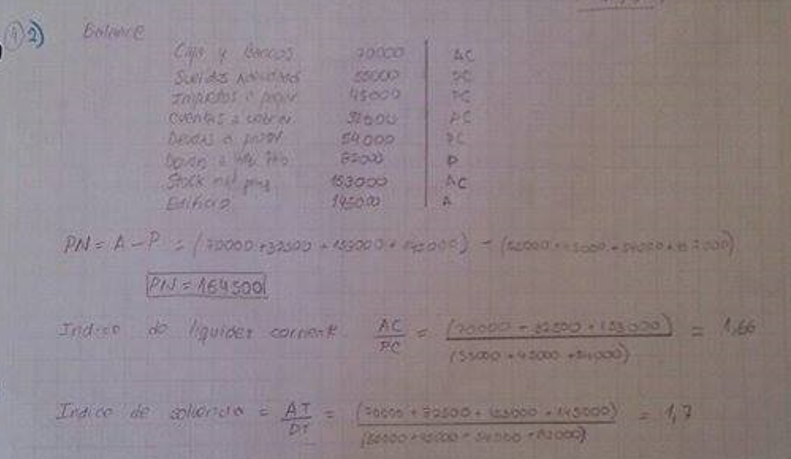 4) 2) Balance
Caja y Bancos 70000 AC
Sueldos Adeudados 55000 PC
Impuestos a pagar 45000 PC
Cuentas a cobrar 32500 AC
Deudas a pagar 54000 PC
Deudas a 82000 P
Stock mat prig 153000 AC
Edificio 145000 A
PN = A - P = (70000 + 32500 + 153000 + 145000) - (55000 + 45000 + 54000 + 82000)
PN = 164500
Indice de liquidez corriente AC/PC = (70000 + 32500 + 153000)/(55000 + 45000 + 54000) = 1,66
Indice de solvencia = AT/DT = (70000 + 32500 + 153000 + 145000)/(55000 + 45000 + 54000 + 82000) = 1,7